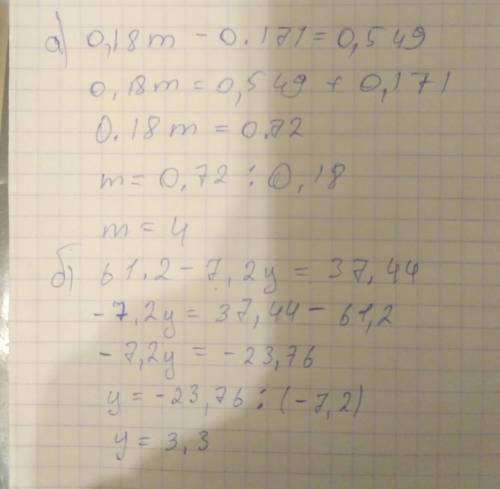 а) 0,18m - 0.171 = 0,549
0,18m = 0,549 + 0,171
0.18m = 0.72
m = 0,72 : 0,18
m = 4
б) 61.2 - 7,2y = 37,44
-7,2y = 37,44 - 61,2
-7,2y = -23,76
y = -23,76 : (-7,2)
y = 3,3